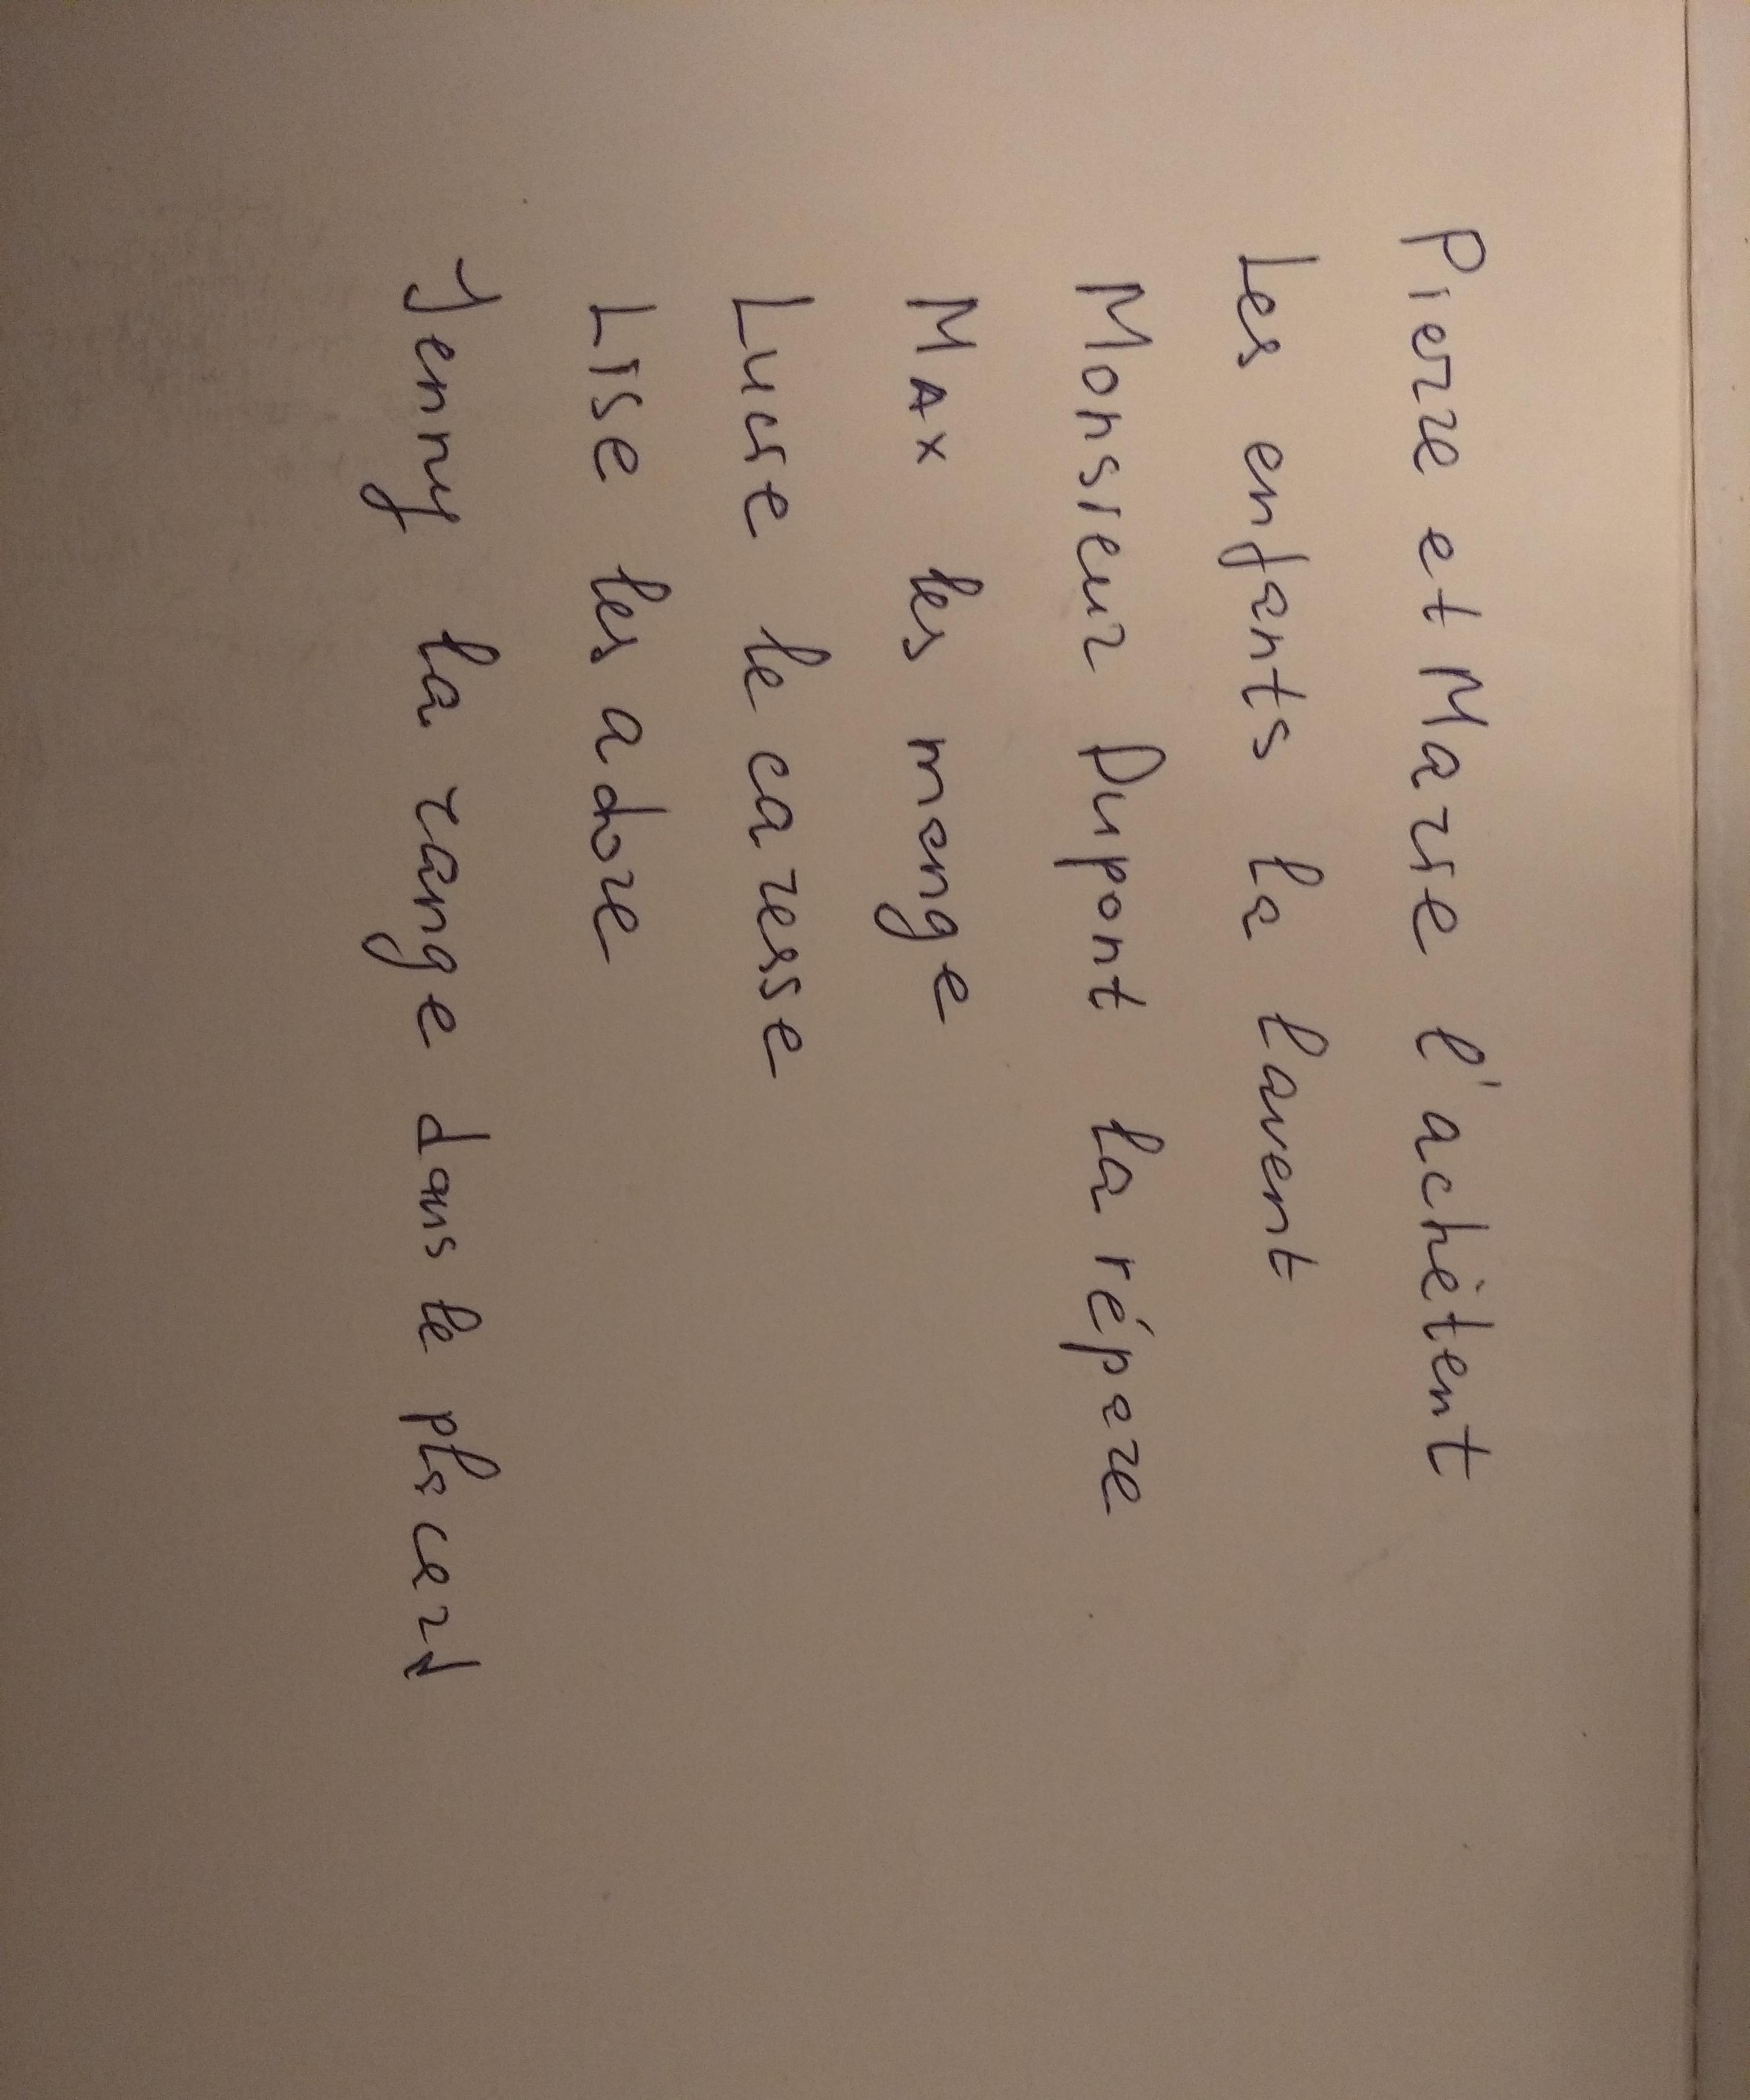 Pierre et Marie l'achètent
Les enfants la lavent
Monsieur Dupont la répare
Max les mange
Lucie le caresse
Lise les adore
Jenny la range dans le placard